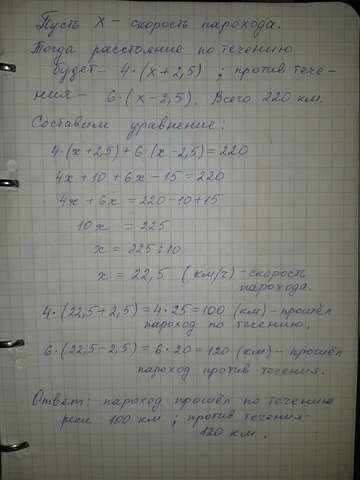 Пусть x - скорость парохода.
Тогда расстояние по течению
будет - 4·(x+2,5) ; против тече-
ния - 6·(x-2,5). Всего 220 км.
Составим уравнение:
4·(x+2,5)+6(x-2,5)=220
4x+10+6x-15=220
4x+6x=220-10+15
10x = 225
x = 225:10
x = 22,5 (км/ч) - скорость
парохода.
4·(22,5+2,5)=4·25=100 (км) - прошёл
пароход по течению.
6·(22,5-2,5)=6·20=120 (км) - прошёл
пароход против течения.
Ответ: пароход прошёл по течению
реки 100 км ; против течения-
120 км.